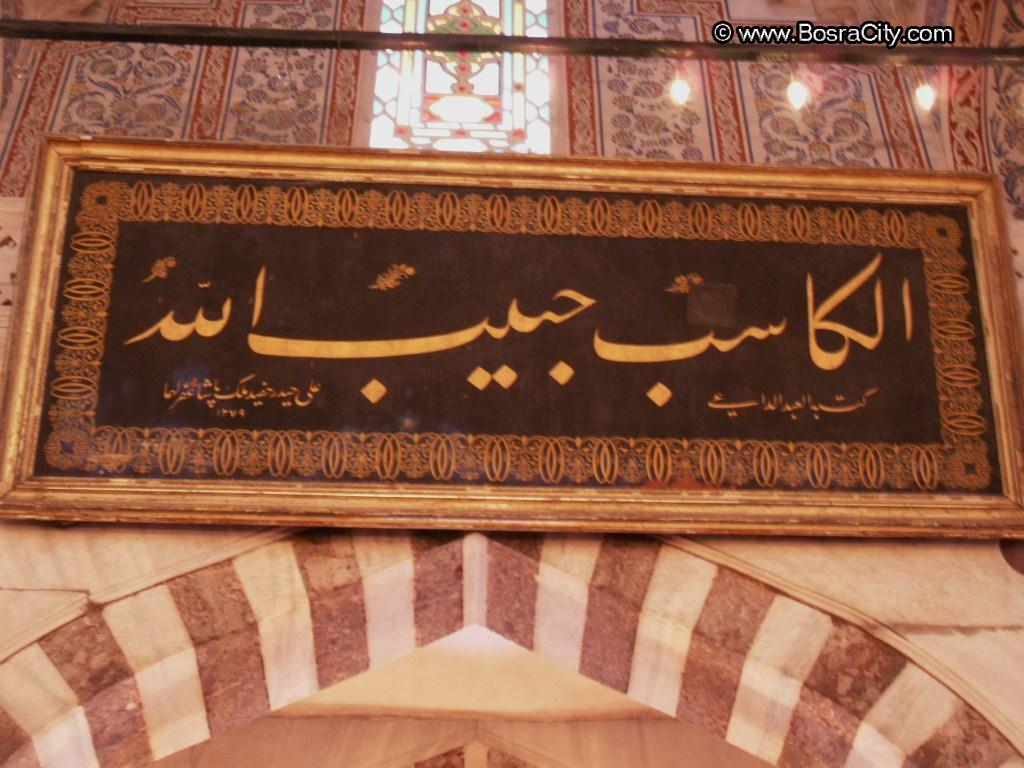 © www.BosraCity.com
الكاسب حبيب الله
كتبه العبد الداعي
علي حيدر حفيد ملك پاشا غفر لهما
١٢٧٩